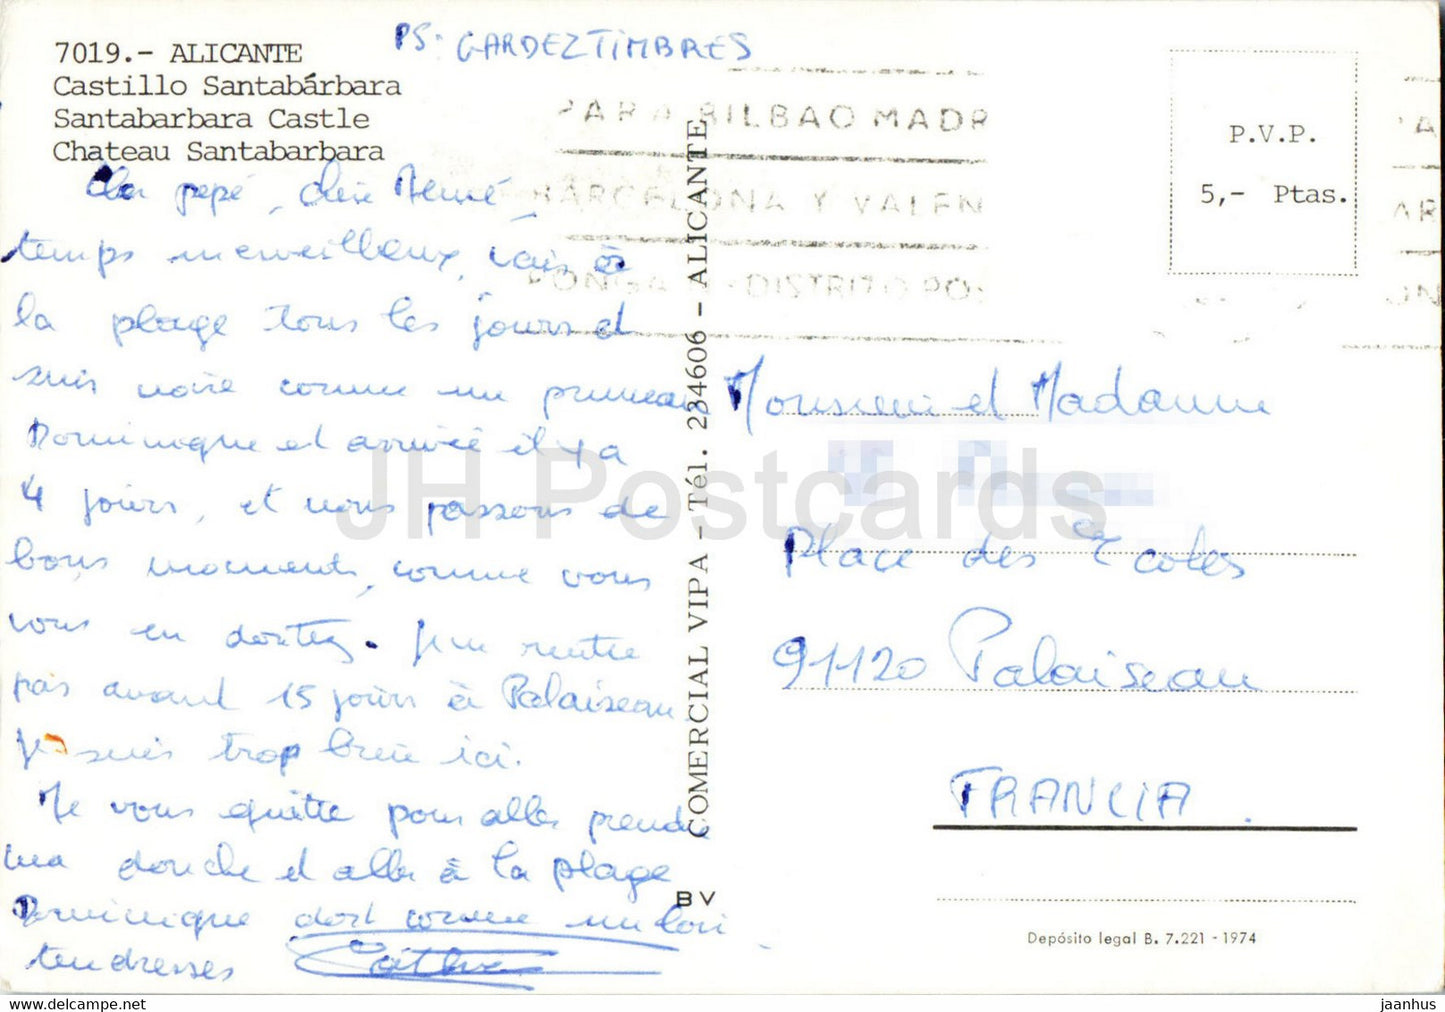 PS: GARDEZ TIMBRES
7019.- ALICANTE
Castillo Santabárbara
Santabarbara Castle
Chateau Santabarbara
pepé, chère Mémé,
temps merveilleux, vais à
la plage tous les jours et
suis noire comme un pruneau
Dominique et arrivé il y a
4 jours, et nous passons de
bons moments, comme vous
vous en doutez. Je ne rentre
pas avant 15 jours à Palaiseau
Je suis trop bien ici.
Je vous quitte pour aller prendre
ma douche et aller à la plage
Dominique dort comme un loir
tendresses
PARA BILBAO MADR
BARCELONA Y VALEN
PONGA Nº DISTRITO POS
COMERCIAL VIPA - Tél. 234606 - ALICANTE
BV
P.V.P.
5,- Ptas.
Monsieur et Madame
Place des Ecoles
91120 Palaiseau
FRANCIA.
Depósito legal B. 7.221 - 1974
JH Postcards
jaanhus | hipstamp.com